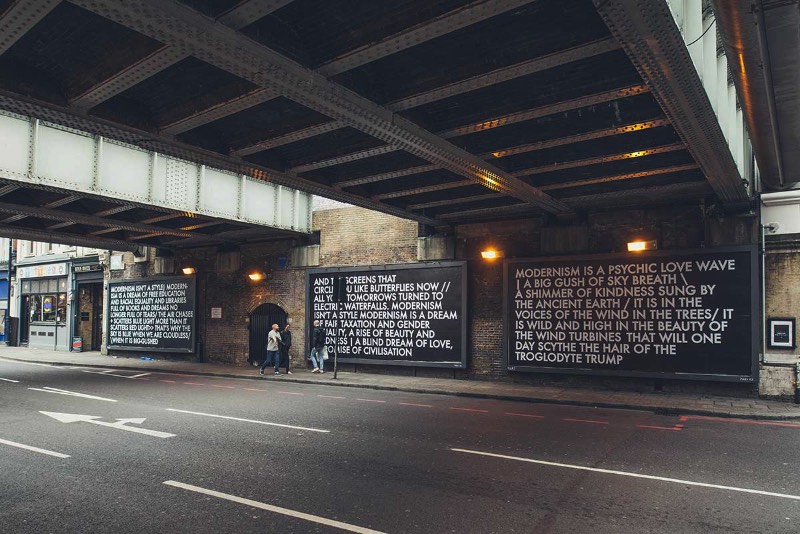 MODERNISM ISN'T A STYLE/ MODERN-
ISM IS A DREAM OF FREE EDUCATION
AND RACIAL EQUALITY AND LIBRARIES
FULL OF BOOKS AND DREAMS NO
LONGER FULL OF TEARS/ THE AIR CHASES
SCATTERS BLUE LIGHT MORE THAN IT
SCATTERS RED LIGHT// THAT'S WHY THE
SKY IS BLUE WHEN WE ARE CLOUDLESS/
WHEN IT IS
AND SCREENS THAT
YOU LIKE BUTTERFLIES NOW //
ALL TOMORROWS TURNED TO
ELECTRIC WATERFALLS. MODERNISM
ISN'T A STYLE MODERNISM IS A DREAM
FAIR TAXATION AND GENDER
A RISE OF BEAUTY AND
| A BLIND DREAM OF LOVE,
OF CIVILISATION
MODERNISM IS A PSYCHIC LOVE WAVE
| A BIG GUSH OF SKY BREATH \
A SHIMMER OF KINDNESS SUNG BY
THE ANCIENT EARTH / IT IS IN THE
VOICES OF THE WIND IN THE TREES/ IT
IS WILD AND HIGH IN THE BEAUTY OF
THE WIND TURBINES THAT WILL ONE
DAY SCYTHE THE HAIR OF THE
TROGLODYTE TRUMP